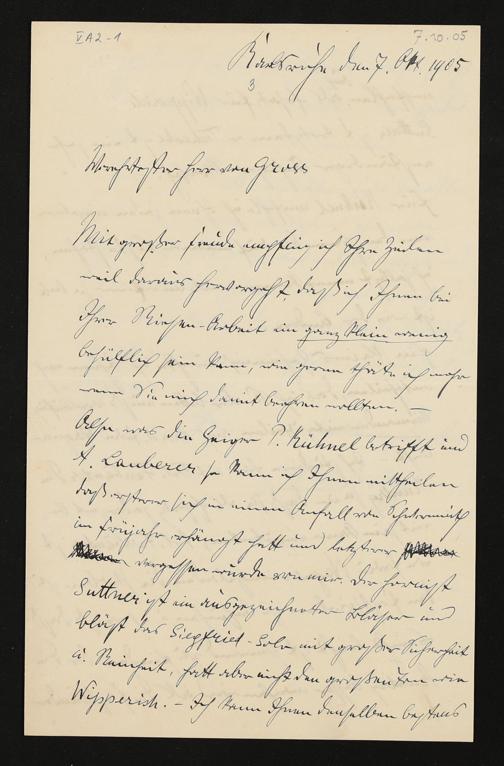 VA2-1
7.10.05
Karlsruhe den 7. Okt. 1905
3
Verehrtester Herr von Gross
Mit großer Freude empfing ich Ihre Zeilen
weil daraus hervorgeht, daß ich Ihnen bei
Ihrer Riesen-Arbeit ein ganz klein wenig
behülflich sein kann, wie gerne thäte ich mehr
wenn Sie mich damit beehren wollten. –
Also was die Geiger P. Kühnel betrifft und
A. Lauberer so kann ich Ihnen mittheilen
daß ersterer sich in einem Anfall von Schwermuth
im Frühjahr erhängt hatt und letzterer
vergessen wurde von mir. Der Hornist
Suttner ist ein ausgezeichneter Bläser und
bläst das Siegfried-Solo mit großer Sicherheit
u. Reinheit, hatt aber nicht den großen Ton wie
Wipperich. – Ich kann Ihnen denselben bestens